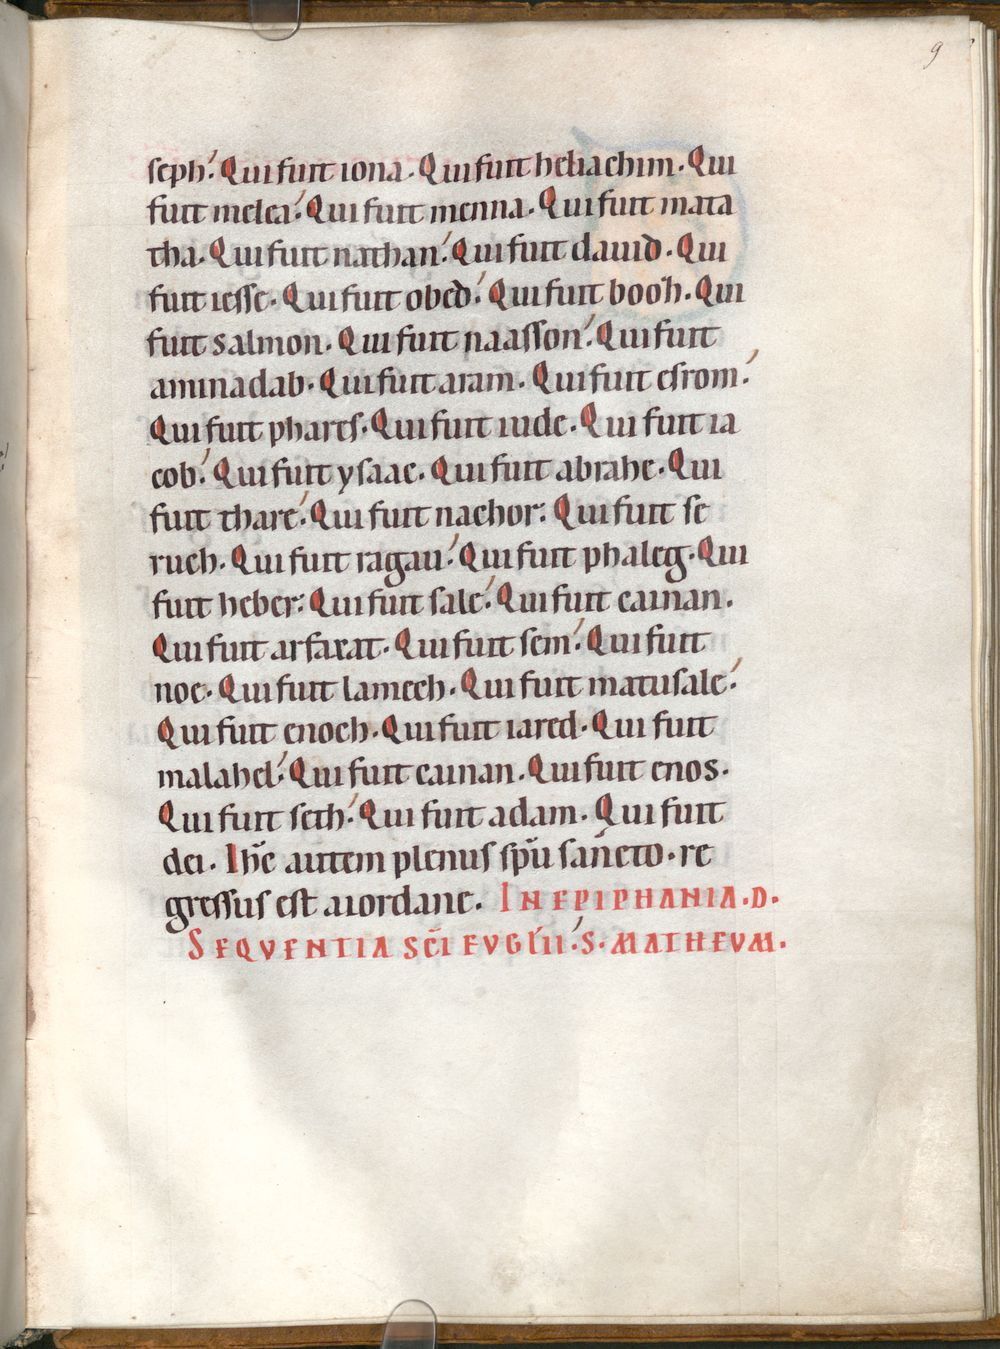 9
seph. Qui fuit iona. Qui fuit heliachim. Qui
fuit melea. Qui fuit menna. Qui fuit mata
tha. Qui fuit nathan. Qui fuit dauid. Qui
fuit iesse. Qui fuit obed. Qui fuit booh. Qui
fuit salmon. Qui fuit naasson. Qui fuit
aminadab. Qui fuit aram. Qui fuit esrom.
Qui fuit phares. Qui fuit iude. Qui fuit ia
cob. Qui fuit ysaac. Qui fuit abrahe. Qui
fuit thare. Qui fuit nachor. Qui fuit se
ruch. Qui fuit ragau. Qui fuit phaleg. Qui
fuit heber. Qui fuit sale. Qui fuit cainan.
Qui fuit arfaxat. Qui fuit sem. Qui fuit
noe. Qui fuit lamech. Qui fuit matusale.
Qui fuit enoch. Qui fuit iared. Qui fuit
malahel. Qui fuit cainan. Qui fuit enos.
Qui fuit seth. Qui fuit adam. Qui fuit
dei. Ihc̄ autem plenus spū sancto. re
gressus est aiordane. IN EPIPHANIA. D.
SEQVENTIA SC̄I EVGL̄II. S. MATHEVM.